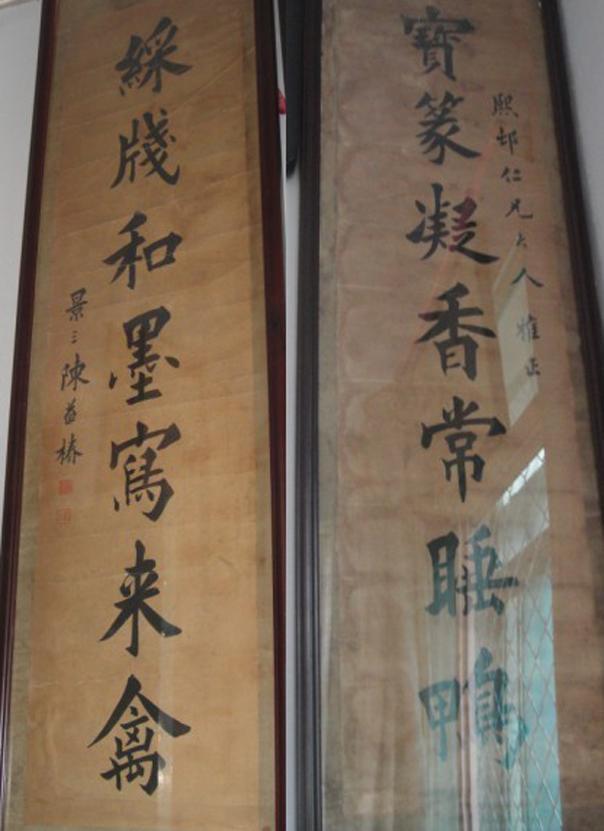 熙邨仁兄大人雅正
寶篆凝香常睡鴨
綵牋和墨寫来禽
景三陳益椿